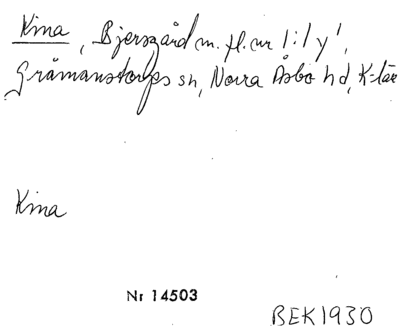 Kina, Bjersgård m. fl. nr 1:1 y',
Gråmanstorps sn, Norra Åsbo hd, K-län
Kina
Nr 14503
BEK1930